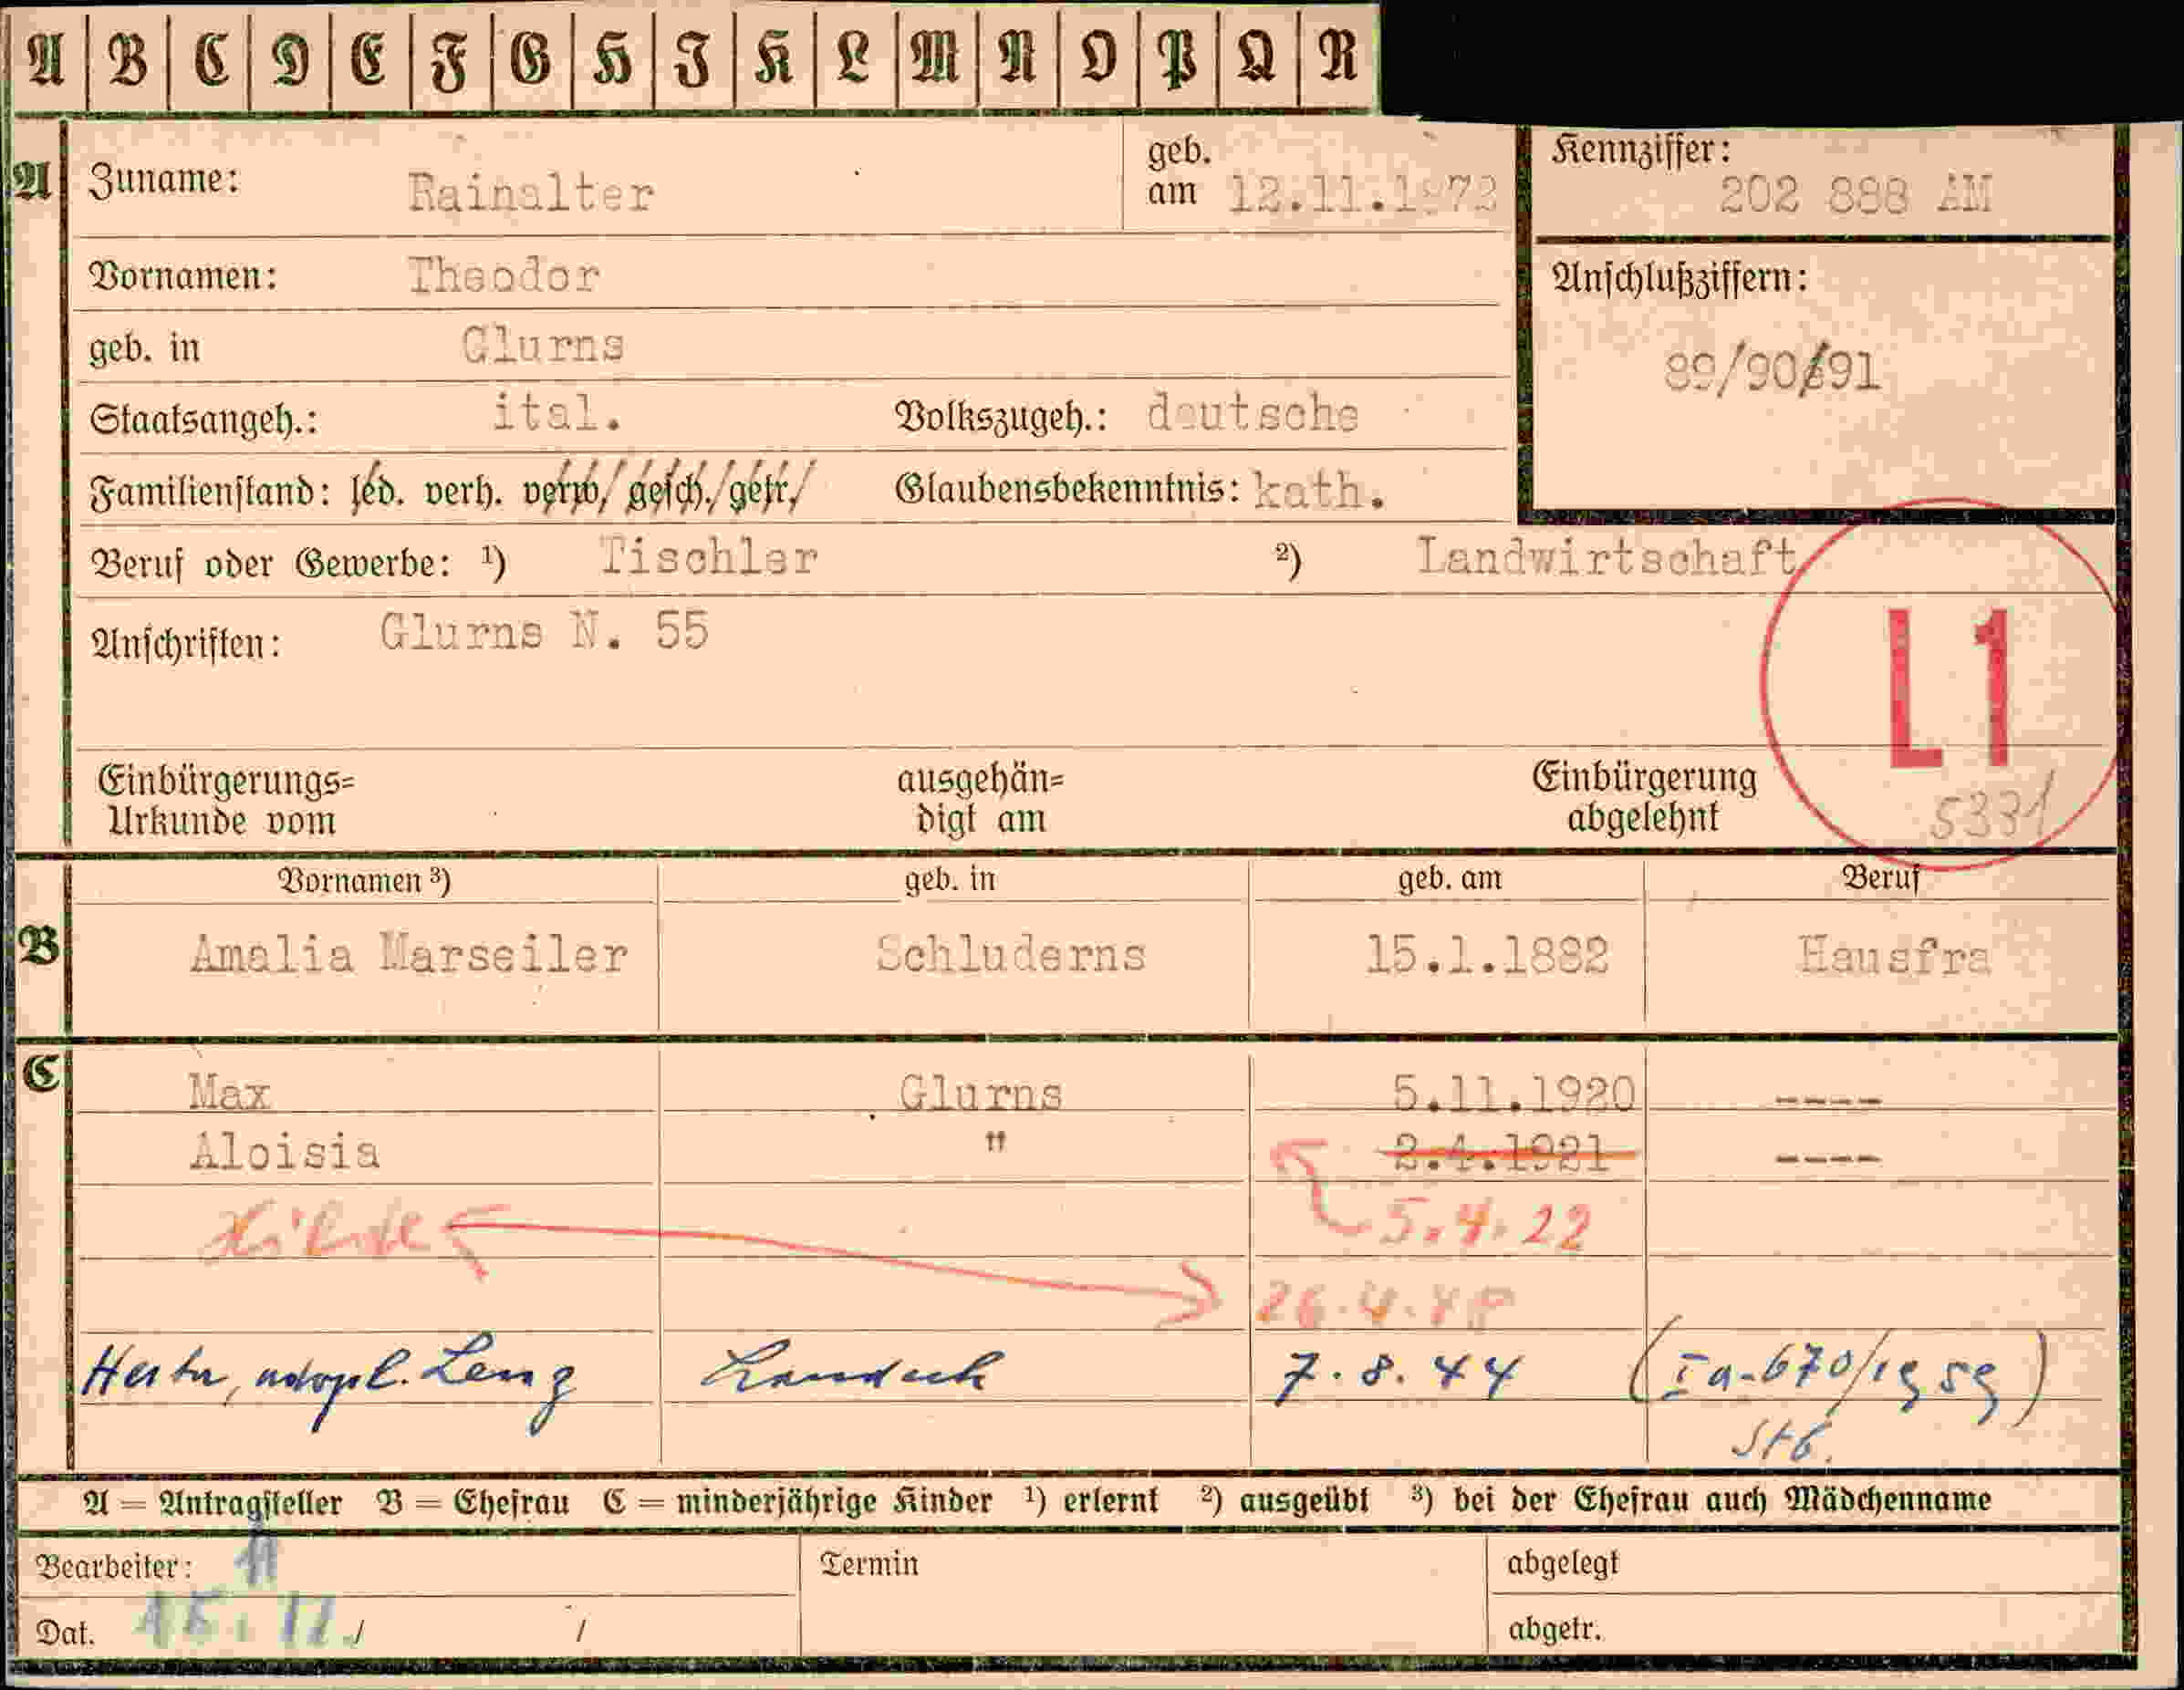 A B C D E F G H I K L M N O P Q R
A Zuname: Rainalter geb. am 12.11.1873 Kennziffer: 202 888 AM
Vornamen: Theodor Anschlußziffern:
geb. in Glurns 89/90/91
Staatsangeh.: ital. Volkszugeh.: deutsche
Familienstand: led. verh. verw. gesch. getr. Glaubensbekenntnis: kath.
Beruf oder Gewerbe: ¹) Tischler ²) Landwirtschaft
Anschriften: Glurns N. 55
L1
Einbürgerungs= ausgehän= Einbürgerung
Urkunde vom digt am abgelehnt 5331
Vornamen ³) geb. in geb. am Beruf
B Amalia Marseiler Schluderns 15.1.1882 Hausfra
C Max Glurns 5.11.1920 ----
Aloisia " 2.4.1921 ----
5.4.22
26.4.
Herta, adopt. Lenz Landeck 7.8.44 (Ia-670/1959)
Stb.
A = Antragsteller B = Ehefrau C = minderjährige Kinder ¹) erlernt ²) ausgeübt ³) bei der Ehefrau auch Mädchenname
Bearbeiter: 11 Termin abgelegt
Dat. 15.11./ / abgetr.